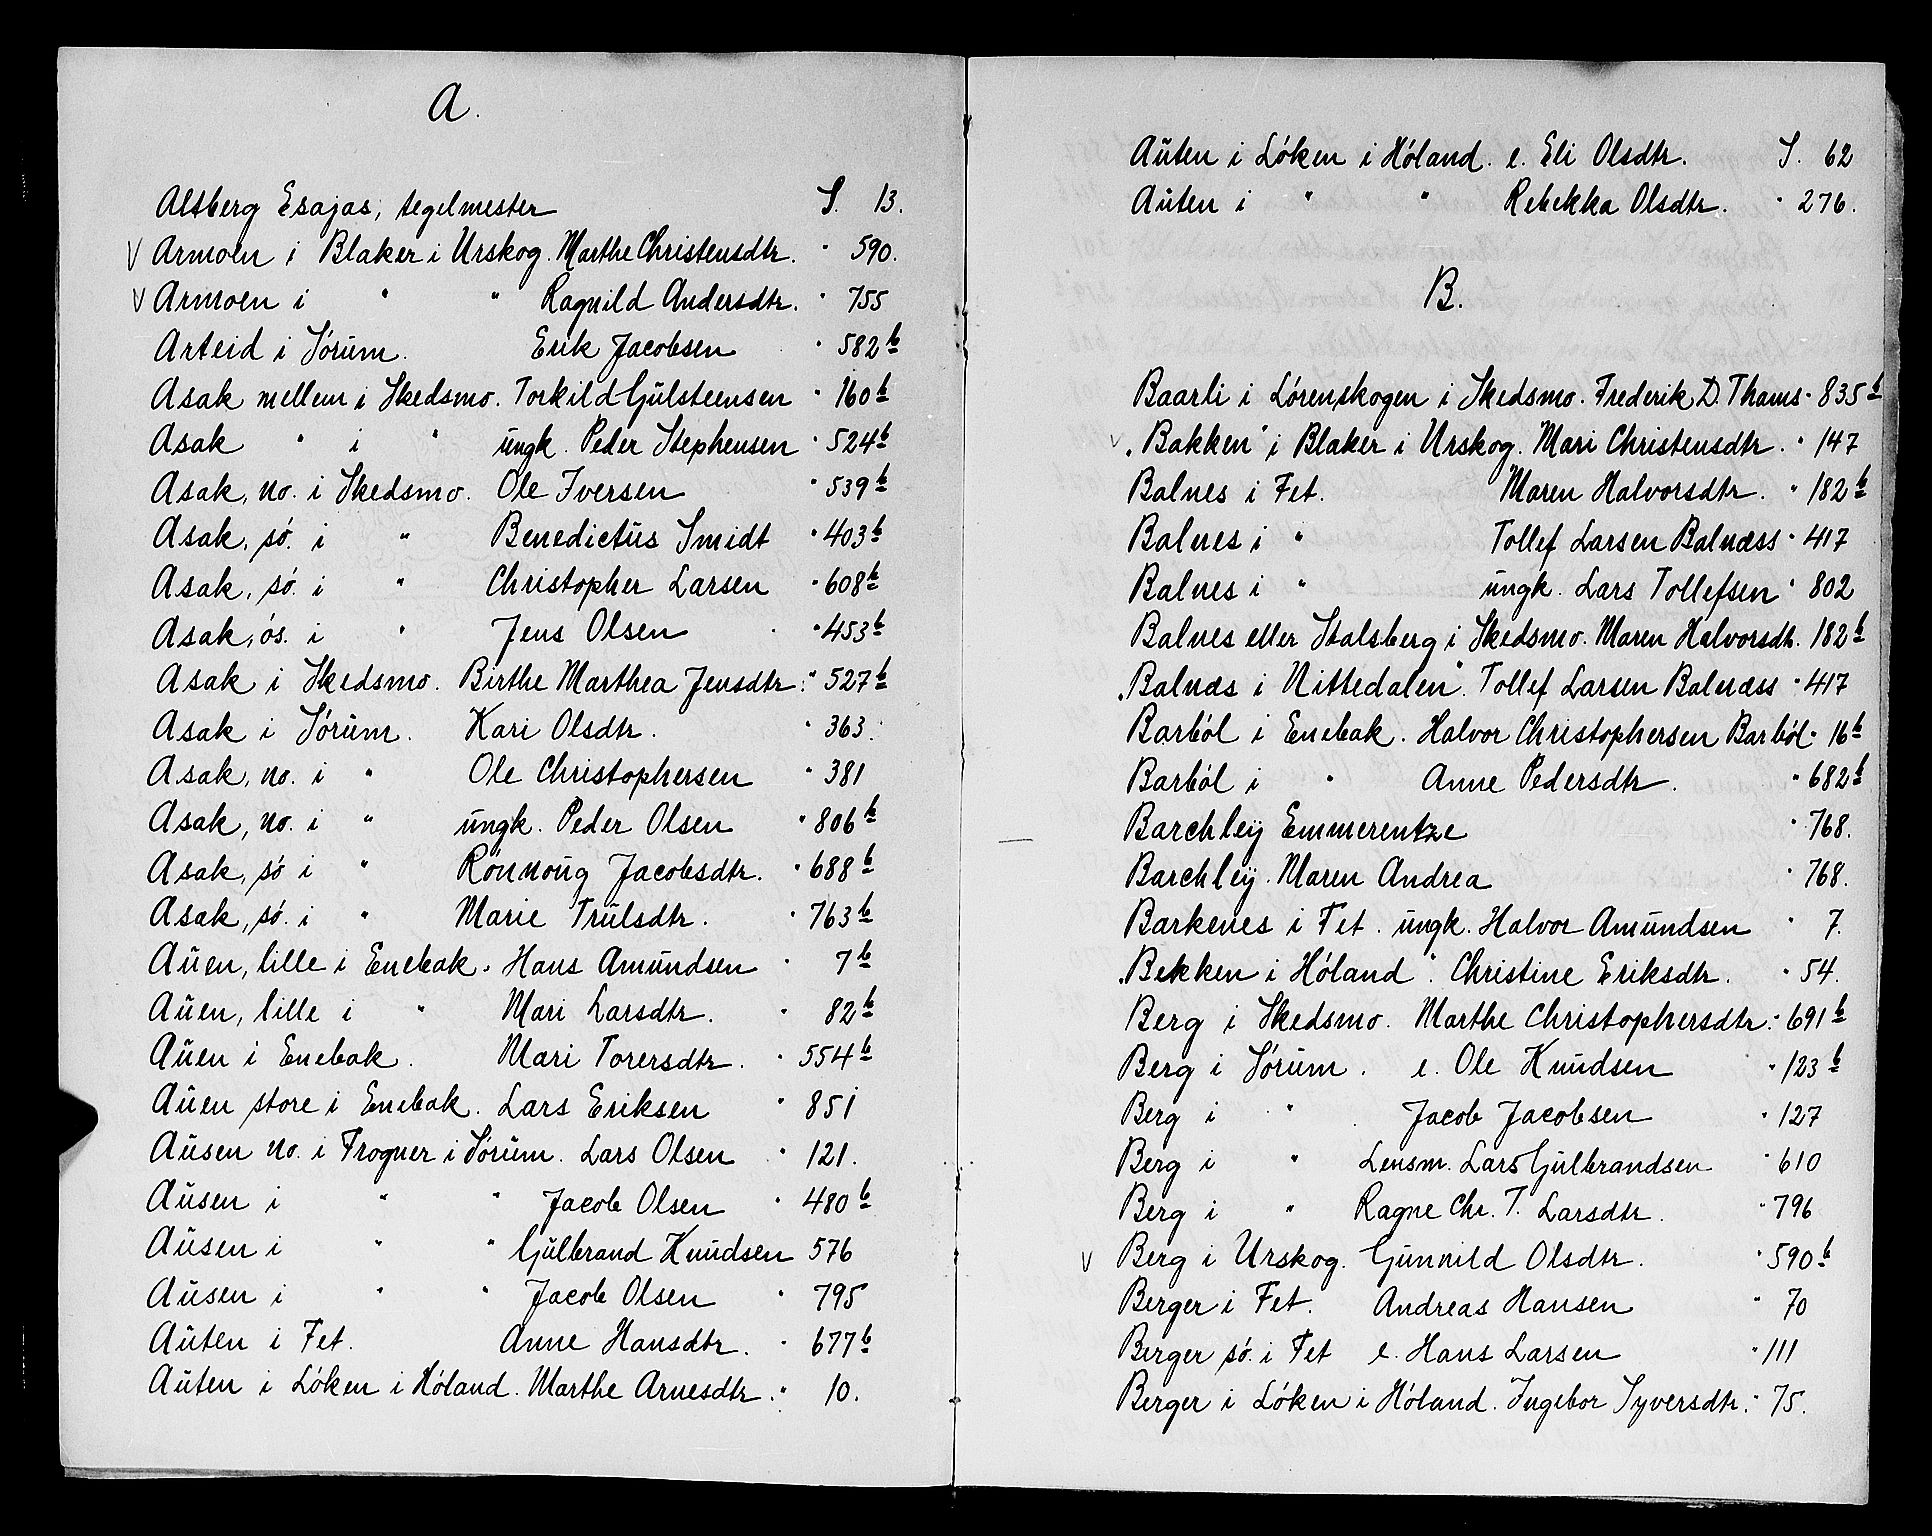 A.
Altberg Esajas, tegelmester S. 13.
V Armoen i Blaker i Urskog. Marthe Christensdtr. " 590.
V Armoen i " " Ragnild Andersdtr. " 755
Arteid i Sórum. Erik Jacobsen " 582b
Asak mellem i Skedsmo. Torkild Gŭlsteensen " 160b
Asak " i " ungk. Peder Stephensen " 524b
Asak, no. i Skedsmo. Ole Iversen " 539b
Asak, só. i " Benedictŭs Smidt " 403b
Asak, só. i " Christopher Larsen " 608b
Asak, ós. i " Jens Olsen " 453b
Asak i Skedsmo. Birthe Marthea Jensdtr. " 527b
Asak i Sórŭm. Kari Olsdtr. " 363.
Asak, no. i " Ole Christophersen " 381
Asak, no. i " ŭngk. Peder Olsen " 806b
Asak, só i " Rónnoŭg Jacobsdtr. " 688b
Asak, só. i " Marie Trŭlsdtr. " 763b
Aŭen, lille i Enebak. Hans Amŭndsen " 7b
Aŭen, lille i " Mari Larsdtr. " 82b
Aŭen i Enebak. Mari Torersdtr. " 554b
Aŭen store i Enebak. Lars Eriksen " 851
Aŭsen no. i Frogner i Sórŭm. Lars Olsen " 121.
Aŭsen i " " Jacob Olsen " 480b
Aŭsen i " " Gŭlbrand Knŭdsen 576
Aŭsen i " " Jacob Olsen " 795
Aŭten i Fet. Anne Hansdtr. " 677b
Aŭten i Lóken i Hóland. Marthe Arnesdtr. " 10.
Aŭten i Lóken i Hóland. e. Eli Olsdtr. S. 62
Aŭten i " " Rebekka Olsdtr. " 276.
B.
Baarli i Lórenskogen i Skedsmo. Frederik D. Thams " 835b
V „Bakken" i Blaker i Urskog. Mari Christensdtr. " 147
Balnes i Fet. Maren Halvorsdtr. " 182b
Balnes i " Tollef Larsen Balnæss " 417
Balnes i " ŭngk. Lars Tollefsen " 802
Balnes eller Stalsberg i Skedsmo. Maren Halvorsdtr. 182b
„Balnæs i Nittedalen". Tollef Larsen Balnæss " 417
Barból i Enebak. Halvor Christophersen Barból " 16b
Barból i " Anne Pedersdtr. " 682b
Barchleÿ Emmerentze " 768.
Barchleÿ. Maren Andrea " 768.
Barkenes i Fet. ŭngk. Halvor Amŭndsen " 7.
„Bekken i Hóland". Christine Eriksdtr. " 54.
Berg i Skedsmo. Marthe Christophersdtr. " 691b
Berg i Sórŭm. e. Ole Knŭdsen " 123b
Berg i " Jacob Jacobsen " 127
Berg i " Lensm. Lars Gŭlbrandsen " 610
Berg i " Ragne Chr. T. Larsdtr. " 796
V Berg i Urskog. Gŭnnild Olsdtr. " 590b
Berger i Fet. Andreas Hansen " 70
Berger só. i Fet e. Hans Larsen " 111
Berger i Lóken i Hóland. Ingebor Syversdtr. " 75.